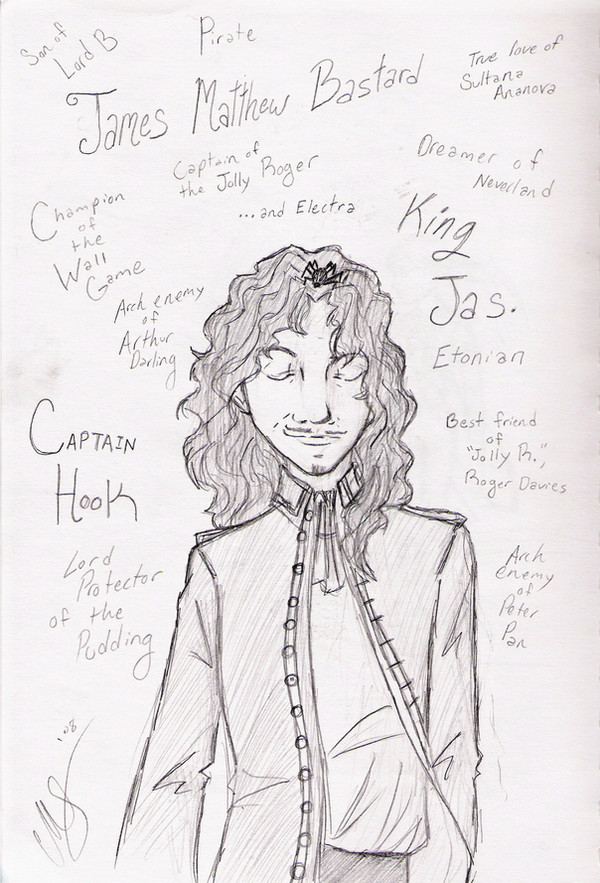 Son of
Lord B
Pirate
True love of
Sultana
Ananova
James Matthew Bastard
Captain of
the Jolly Roger
...and Electra
Dreamer of
Neverland
Champion
of
the
Wall
Game
King
Jas.
Arch enemy
of
Arthur
Darling
Etonian
Captain
Hook
Best friend
of
"Jolly R.",
Roger Davies
Lord
Protector
of the
Pudding
Arch
enemy
of
Peter
Pan
'08